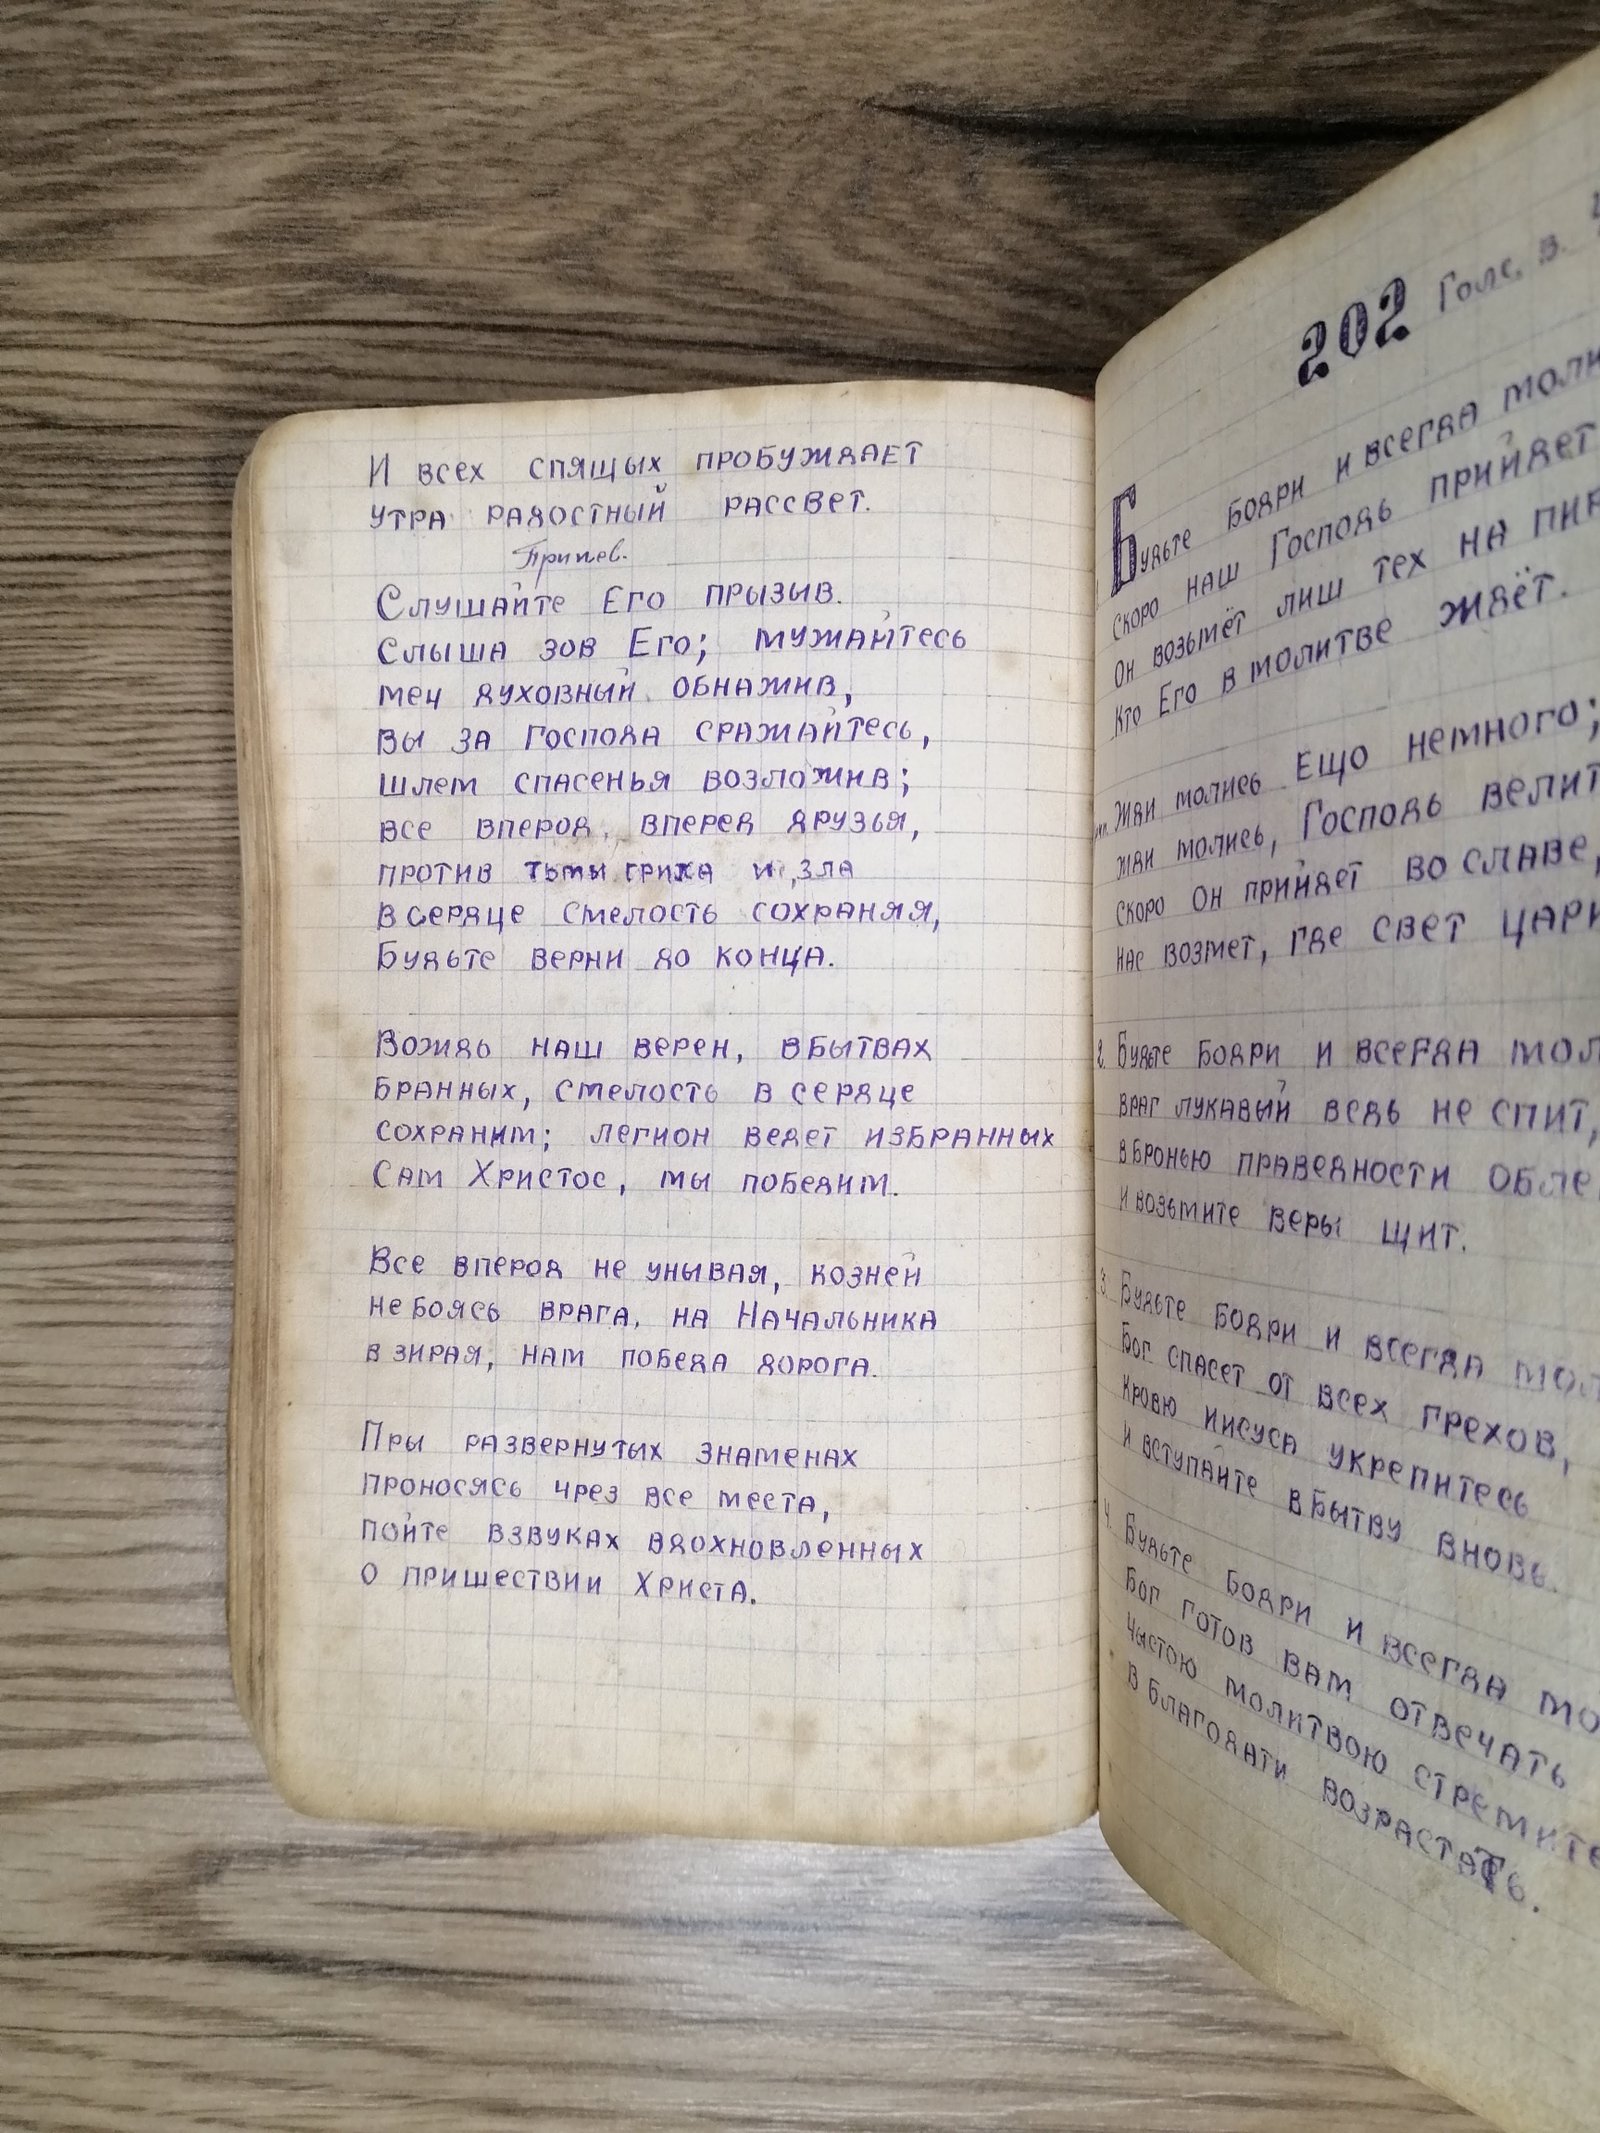 И всех спящых пробуждает
утра радостный рассвет.
Припев.
Слушайте Его прызыв.
Слыша зов Его; мужайтесь
меч духовный обнажив,
вы за Господа сражайтесь,
шлем спасенья возложив;
все вперод, вперед друзья,
против тьмы гриха и, зла
в сердце смелость сохраняя,
Будьте верни до конца.
Вождь наш верен, в бытвах
бранных, смелость в сердце
сохраним; легион ведет избранных
Сам Христос, мы победим.
Все вперод не унывая, козней
не боясь врага, на Начальника
взирая, нам победа дорога.
Пры развернутых знаменах
проносясь чрез все места,
пойте в звуках вдохновленных
о пришествии Христа.
202 Голс. в.
Будьте бодри и всегда
скоро наш Господь прийдет
Он возьмёт лиш тех на
кто Его в молитве ждёт.
Жди молись Ещо немного;
жди молись, Господь велит
скоро Он прийдет во славе,
нас возмет, где свет
2. Будьте бодри и всегда
враг лукавый ведь не спит,
в бронью праведности
и возьмите веры щит.
3. Будьте бодри и всегда
Бог спасет от всех грехов,
кровю Иисуса укрепитесь
и вступайте в бытву вновь.
4. Будьте бодри и всегда
Бог готов вам отвечать
чыстою молитвою
в благодати возрастать.